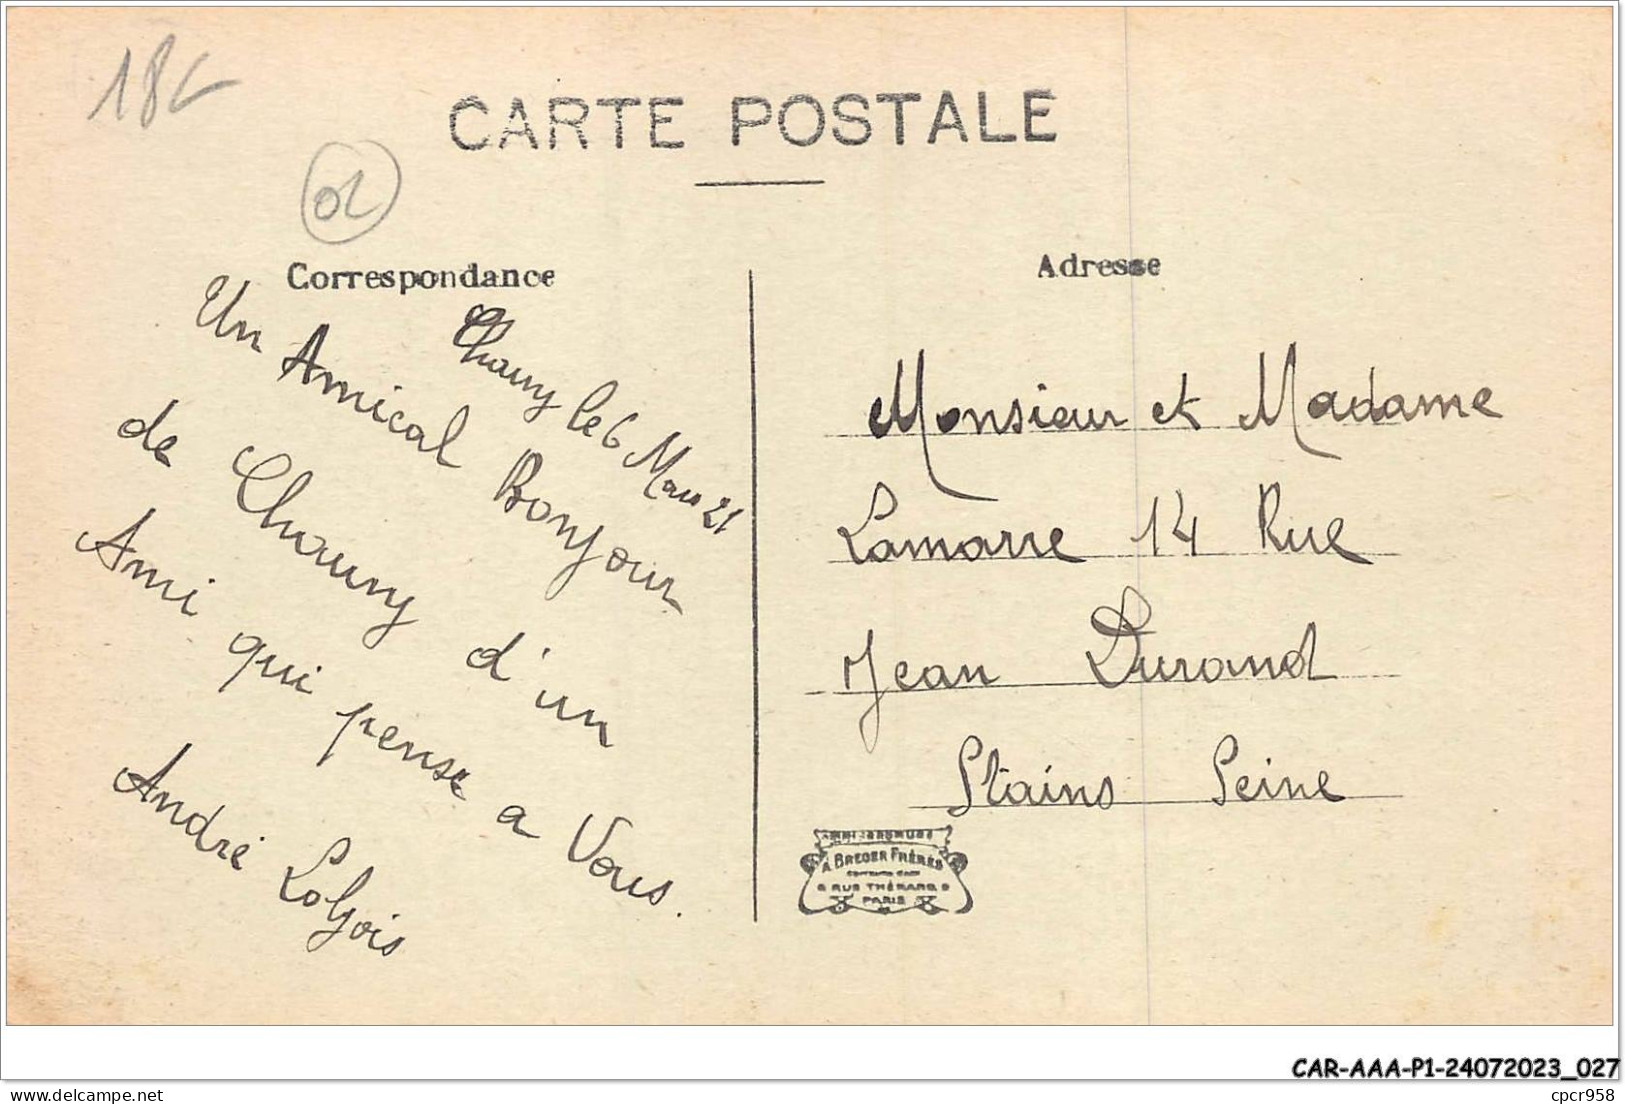 18
02
CARTE POSTALE
Correspondance
Chauny le 6 Mars 21
Un Amical Bonjour
de Chauny d'un
Ami qui pense a Vous.
André
Adresse
Monsieur et Madame
Lamarre 14 Rue
Jean Durand
Stains Seine
A BREGER FRÈRES
9 RUE THÉNARD 9
PARIS
CAR-AAA-P1-24072023_027
delcampe.net
cpcr958